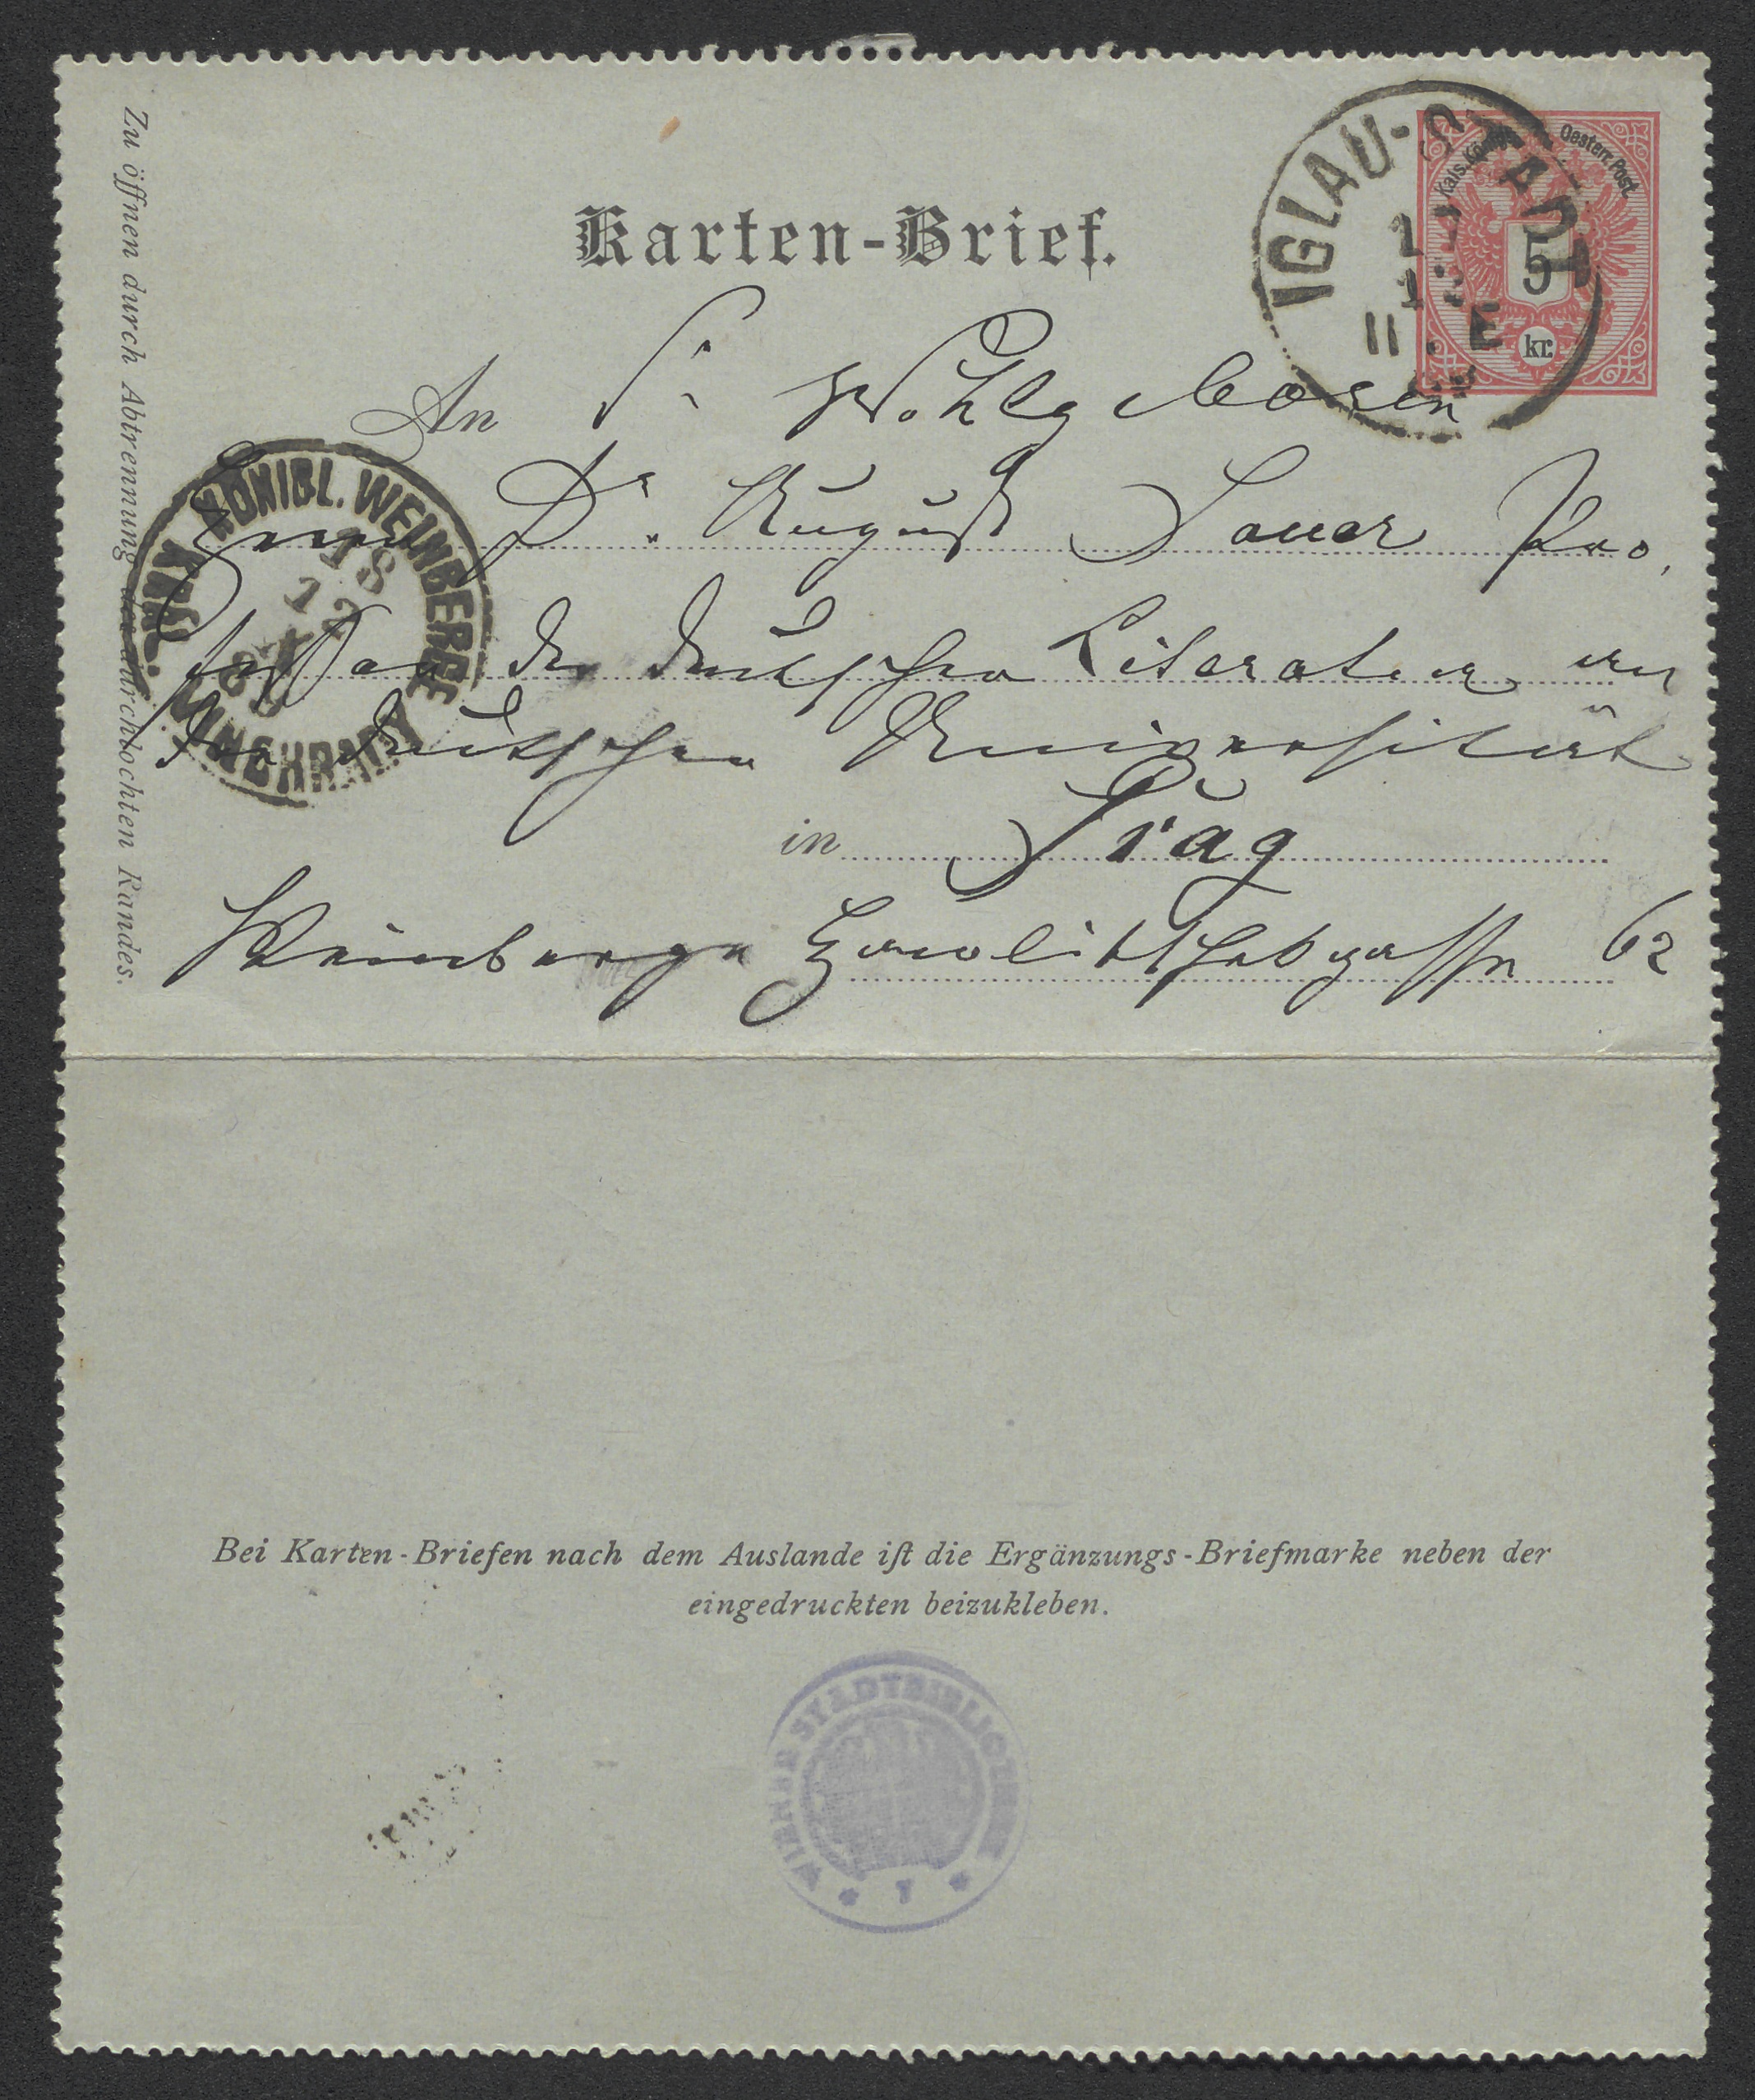 Zu öffnen durch Abtrennung des durchlochten Randes.
Karten-Brief.
IGLAU-STADT
Kais. Königl. Oesterr. Post.
5
kr.
An Sr Wohlgeboren
Herrn Dr. August Sauer Pro,
fessor der deutschen Literatur an
der deutschen Universität
in Prag
Weinberge Hawlitschekgasse 62
KÖNIGL. WEINBERGE
KRÁL. VINOHRADY
18
12
87
Bei Karten-Briefen nach dem Auslande iſt die Ergänzungs-Briefmarke neben der
eingedruckten beizukleben.
WIENER STADTBIBLIOTHEK